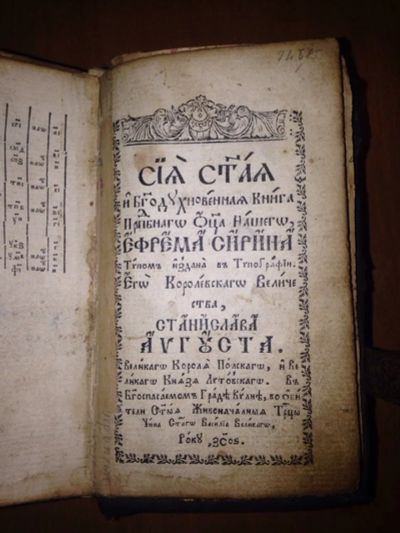 СІѦ̀ СТ҃АѦ
и҆ Бг҃одꙋхнове́ннаѧ Книга
Прⷣпбнагѡ Ѻ҆ц҃а Нашегѡ,
Е҆ФРЕ́МА СѴ́РИНА
Тѵпомъ и҆́здана въ Тѵпогра́фїи.
Е҆гѡ̀ Короле́вскагѡ Вели́че
ства,
СТАНИСЛА́ВА
А҆́ѴГꙊСТА.
Великагѡ Королѧ По́лскагѡ, и҆ Ве
ли́кагѡ Кнѧзѧ Лето́вскагѡ. Въ
Бг҃оспасаемомъ Гра́дѣ Ви́лнѣ, во ѻ҆би́
тели Ст҃ыѧ Живонача́лныѧ Трⷪ҇цы
Чина Ст҃агѡ Васи́лїа Вели́кагѡ,
Ро́кꙋ